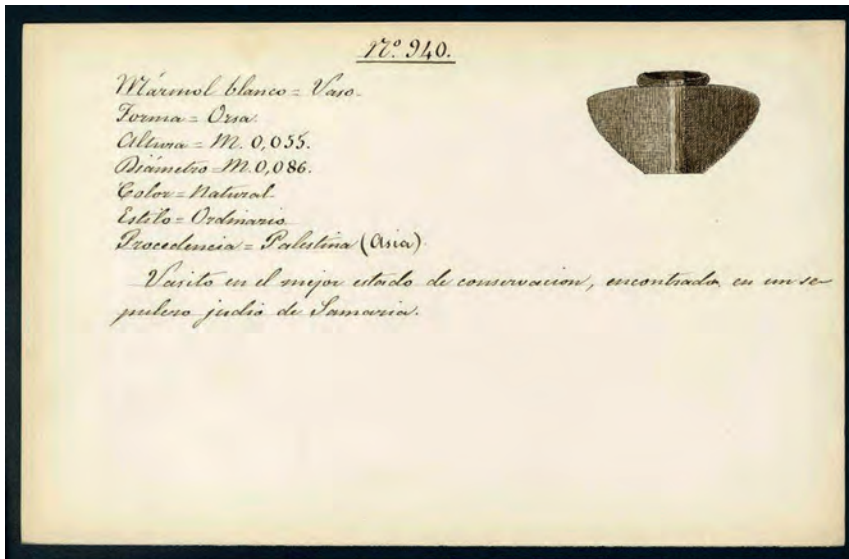 Nº 940.
Mármol blanco = Vaso.
Forma = Orsa.
Altura = M. 0,055.
Diámetro = M. 0,086.
Color = Natural.
Estilo = Ordinario.
Procedencia = Palestina (Asia).
Vasito en el mejor estado de conservacion, encontrado en un se-
pulcro judio de Samaria.